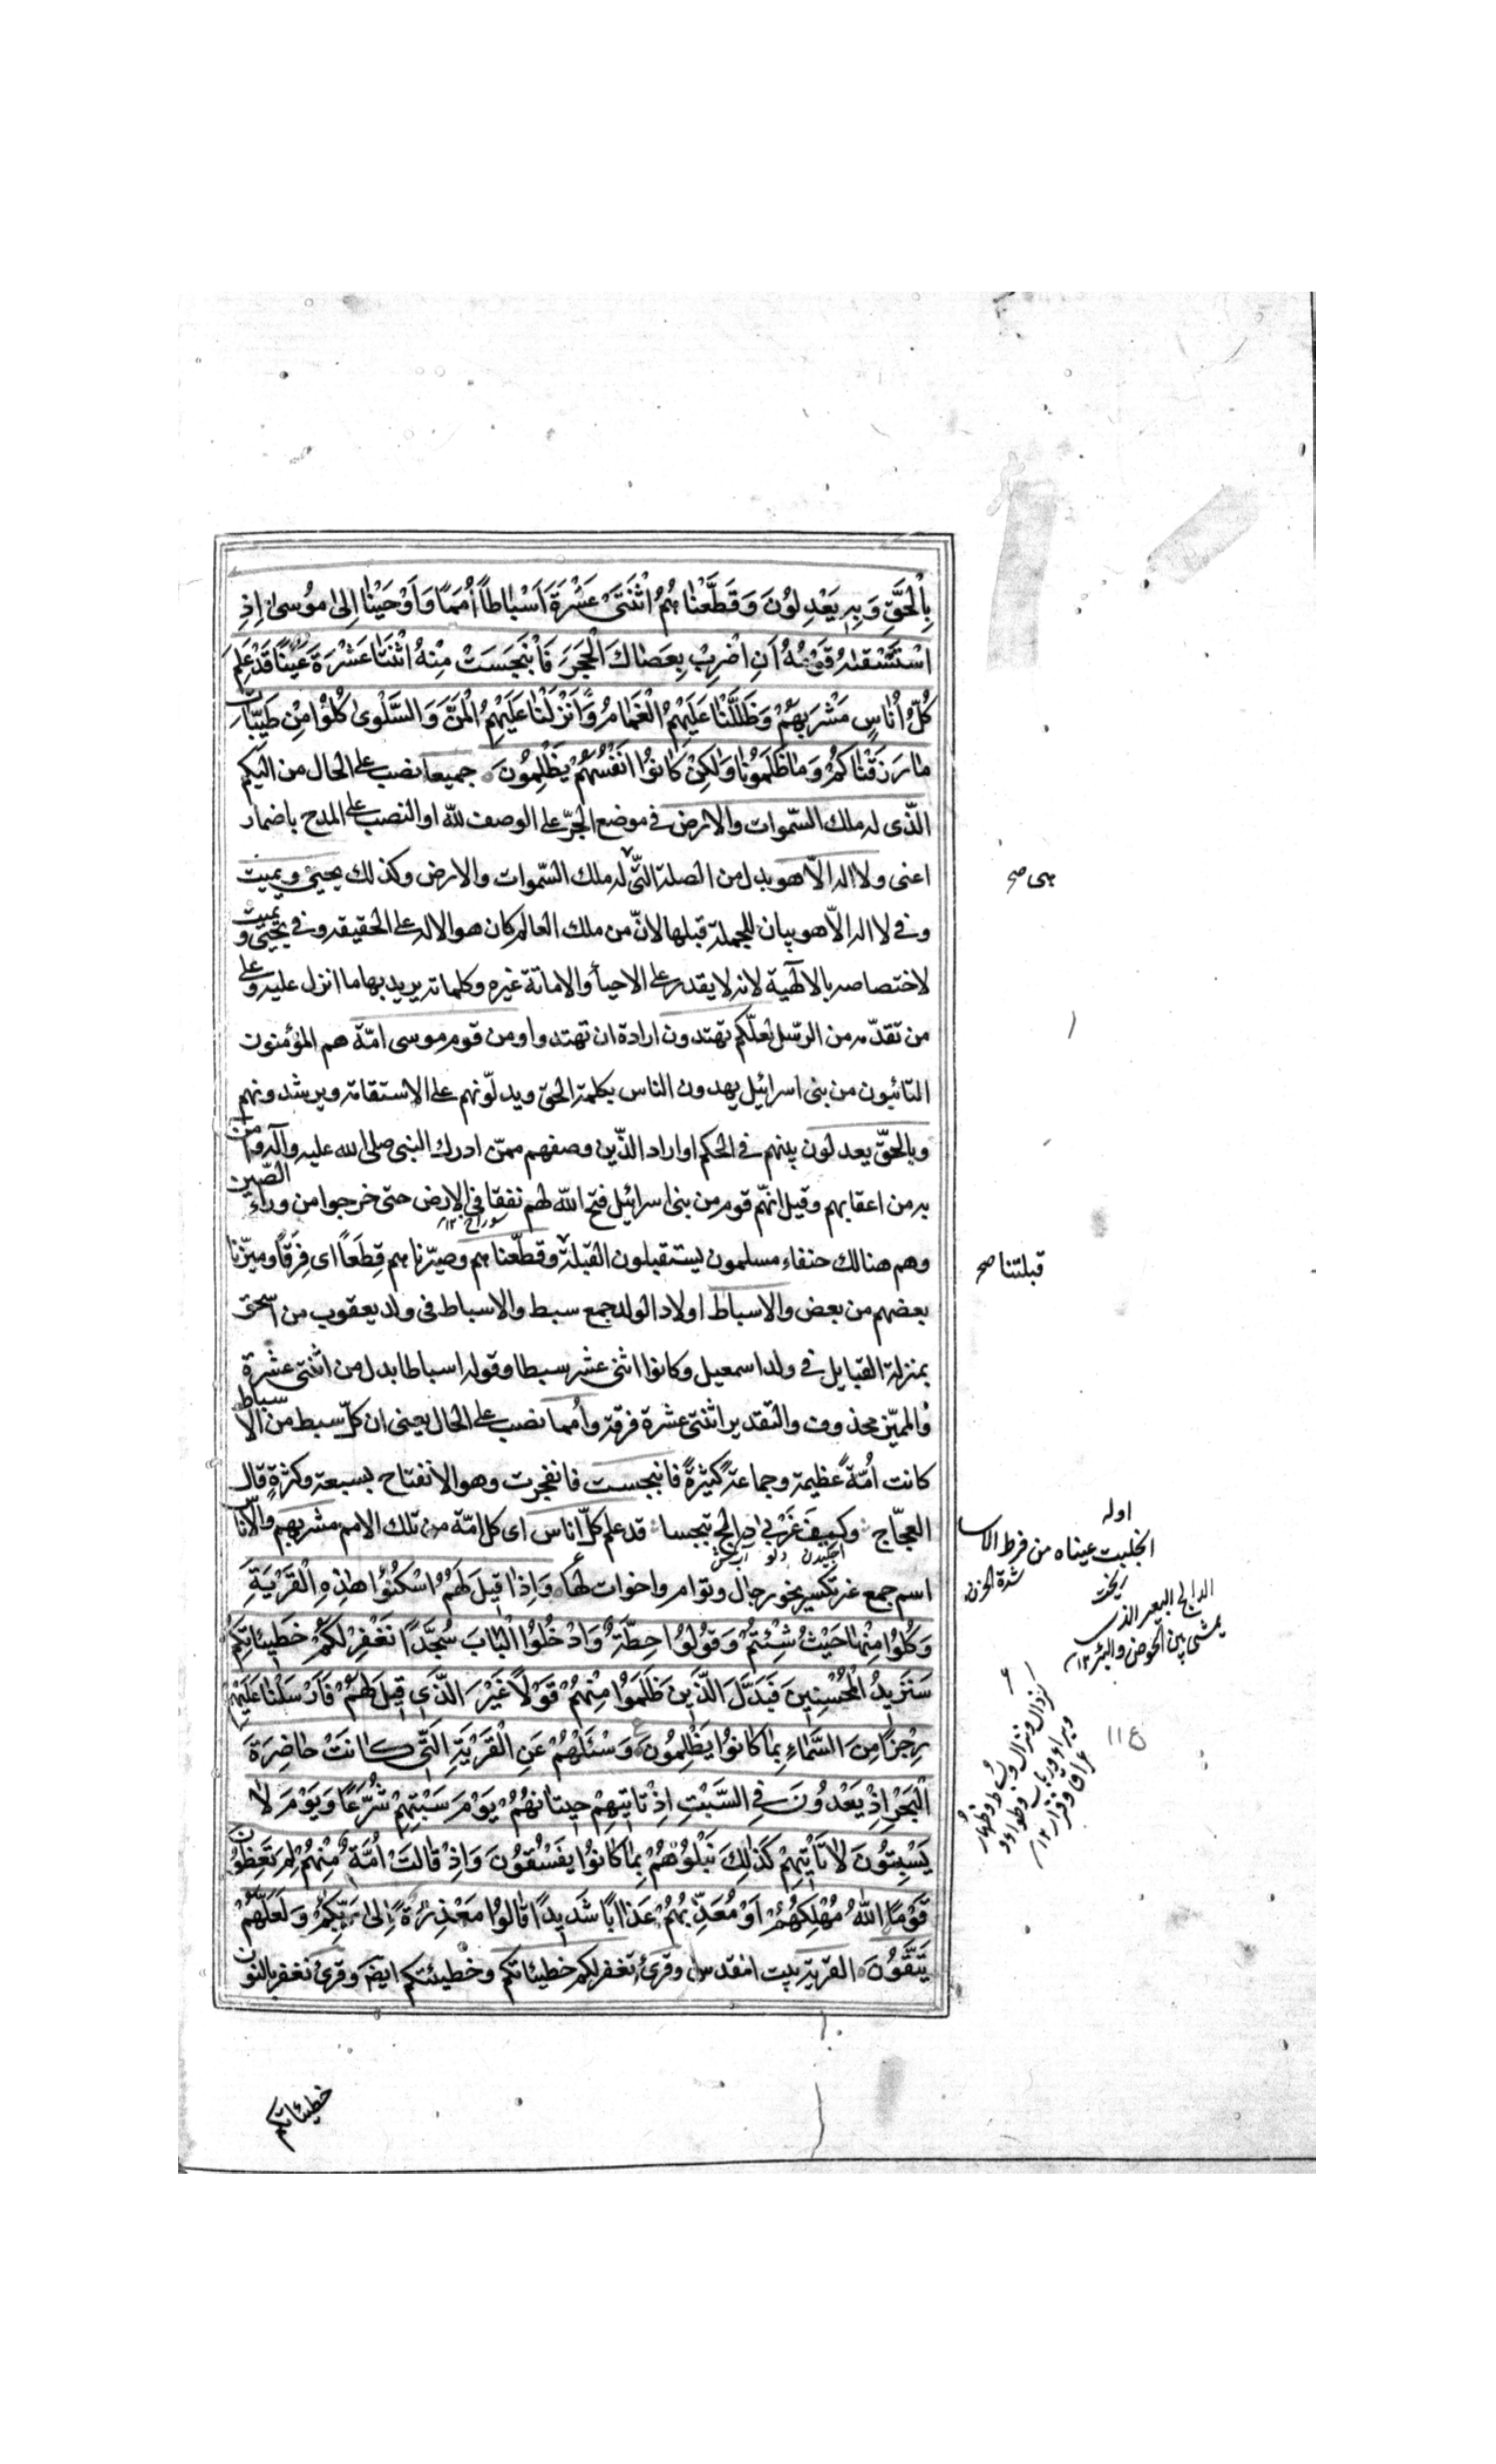 بِالْحَقِّ وَبِهِ يَعْدِلُونَ وَقَطَّعْنَاهُمُ اثْنَتَىْ عَشْرَةَ اَسْبَاطاً اُمَماً وَاَوْحَيْنَا اِلىٰ مُوسىٰ اِذِ
اسْتَسْقٰهُ قَوْمُهُ اَنِ اضْرِبْ بِعَصَاكَ الْحَجَرَ فَانْبَجَسَتْ مِنْهُ اثْنَتَا عَشْرَةَ عَيْنًا قَدْ عَلِمَ
كُلُّ اُنَاسٍ مَشْرَبَهُمْ وَظَلَّلْنَا عَلَيْهِمُ الْغَمَامَ وَاَنْزَلْنَا عَلَيْهِمُ الْمَنَّ وَالسَّلْوىٰ كُلُوا مِنْ طَيِّبَاتِ
مَا رَزَقْنَاكُمْ وَمَا ظَلَمُونَا وَلٰكِنْ كَانُوا اَنْفُسَهُمْ يَظْلِمُونَ جميعا نصب على الحال من اليكم
الّذى له ملك السّموات والارض فى موضع الجرّ على الوصف للّه او النصب على المدح باضمار
اعنى ولا اله الاّ هو بدل من الصلة الّتى له ملك السّموات والارض وكذلك يحيى ويميت
وفى لا اله الاّ هو بيان للجملة قبلها لانّ من ملك العالم كان هو الاله على الحقيقة وفى يحيى ويميت
لاختصاصه بالالٓهية لانه لا يقدر على الاحيآء والاماتة غيره وكلماته يريد بها ما انزل عليه وعلى
من تقدّمه من الرّسل لعلّكم تهتدون ارادة ان تهتدوا ومن قوم موسى امّة هم المؤمنون
التائبون من بنى اسرائيل يهدون الناس بكلمة الحق ويدلّونهم على الاستقامة ويرشدونهم
وبالحقّ يعدلون بينهم فى الحكم او اراد الذّين وصفهم ممّن ادرك النبى صلى الله عليه وآله وامن
به من اعقابهم وقيل انهّم قوم من بنى اسرائيل فتح اللّه لهم نفقا فى الارض حتى خرجوا من وراء الصّين
سوراخ ١٢
وهم هنالك حنفاء مسلمون يستقبلون القبلة وقطّعناهم وصيّرناهم قِطَعاً اى فِرَقاً وميّزنا
بعضهم من بعض والاسباط اولاد الولد جمع سبط والاسباط فى ولد يعقوب من اسحق
بمنزلة القبايل فى ولد اسمعيل وكانوا اثنى عشر سبطا وقوله اسباطا بدل من اثنتى عشرة
والمميّز محذوف والتقدير اثنتى عشرة فرقة وأمما نصب على الحال يعنى ان كلّ سبط من الاسباط
كانت اُمّةً عظيمة وجماعة كثيرةً فانبجست فانفجرت وهو الانفتاح بسعة وكثرة قال
العجّاج وكيف غَرْبى دالج تبجسا قد علم كلّ اناس اى كل امّة من تلك الامم مشربهم والأناس
اسم جمع غير تكسير نحو رجال وتوام واخوات لها وَاِذْ قِيلَ لَهُمُ اسْكُنُوا هٰذِهِ الْقَرْيَةَ
وَكُلُوا مِنْهَا حَيْثُ شِئْتُمْ وَقُولُوا حِطَّةٌ وَادْخُلُوا الْبَابَ سُجَّدًا نَغْفِرْ لَكُمْ خَطِيئَاتِكُمْ
سَنَزِيدُ الْمُحْسِنِينَ فَبَدَّلَ الَّذِينَ ظَلَمُوا مِنْهُمْ قَوْلاً غَيْرَ الَّذِى قِيلَ لَهُمْ فَاَرْسَلْنَا عَلَيْهِمْ
رِجْزًا مِنَ السَّمَاءِ بِمَا كَانُوا يَظْلِمُونَ وَسْئَلْهُمْ عَنِ الْقَرْيَةِ الَّتِى كَانَتْ حَاضِرَةَ
الْبَحْرِ اِذْ يَعْدُونَ فِى السَّبْتِ اِذْ تَأْتِيهِمْ حِيتَانُهُمْ يَوْمَ سَبْتِهِمْ شُرَّعًا وَيَوْمَ لَا
يَسْبِتُونَ لَا تَأْتِيهِمْ كَذٰلِكَ نَبْلُوهُمْ بِمَا كَانُوا يَفْسُقُونَ وَاِذْ قَالَتْ اُمَّةٌ مِنْهُمْ لِمَ تَعِظُونَ
قَوْمًا اللّٰهُ مُهْلِكُهُمْ اَوْ مُعَذِّبُهُمْ عَذَابًا شَدِيدًا قَالُوا مَعْذِرَةً اِلىٰ رَبِّكُمْ وَلَعَلَّهُمْ
يَتَّقُونَ القرية بيت المقدس وقرئ تغفر لكم خطيئاتكم وخطيئتكم ايضا وقرئ نغفر بالنون
خطيئاتكم
هى صح
قبلتنا صح
اوله
انحلبت عيناه من فرط الاسا
ريخت
شدة الحزن
الدالج البعير الذى
يمشى بين الحوض والبئر ١٢